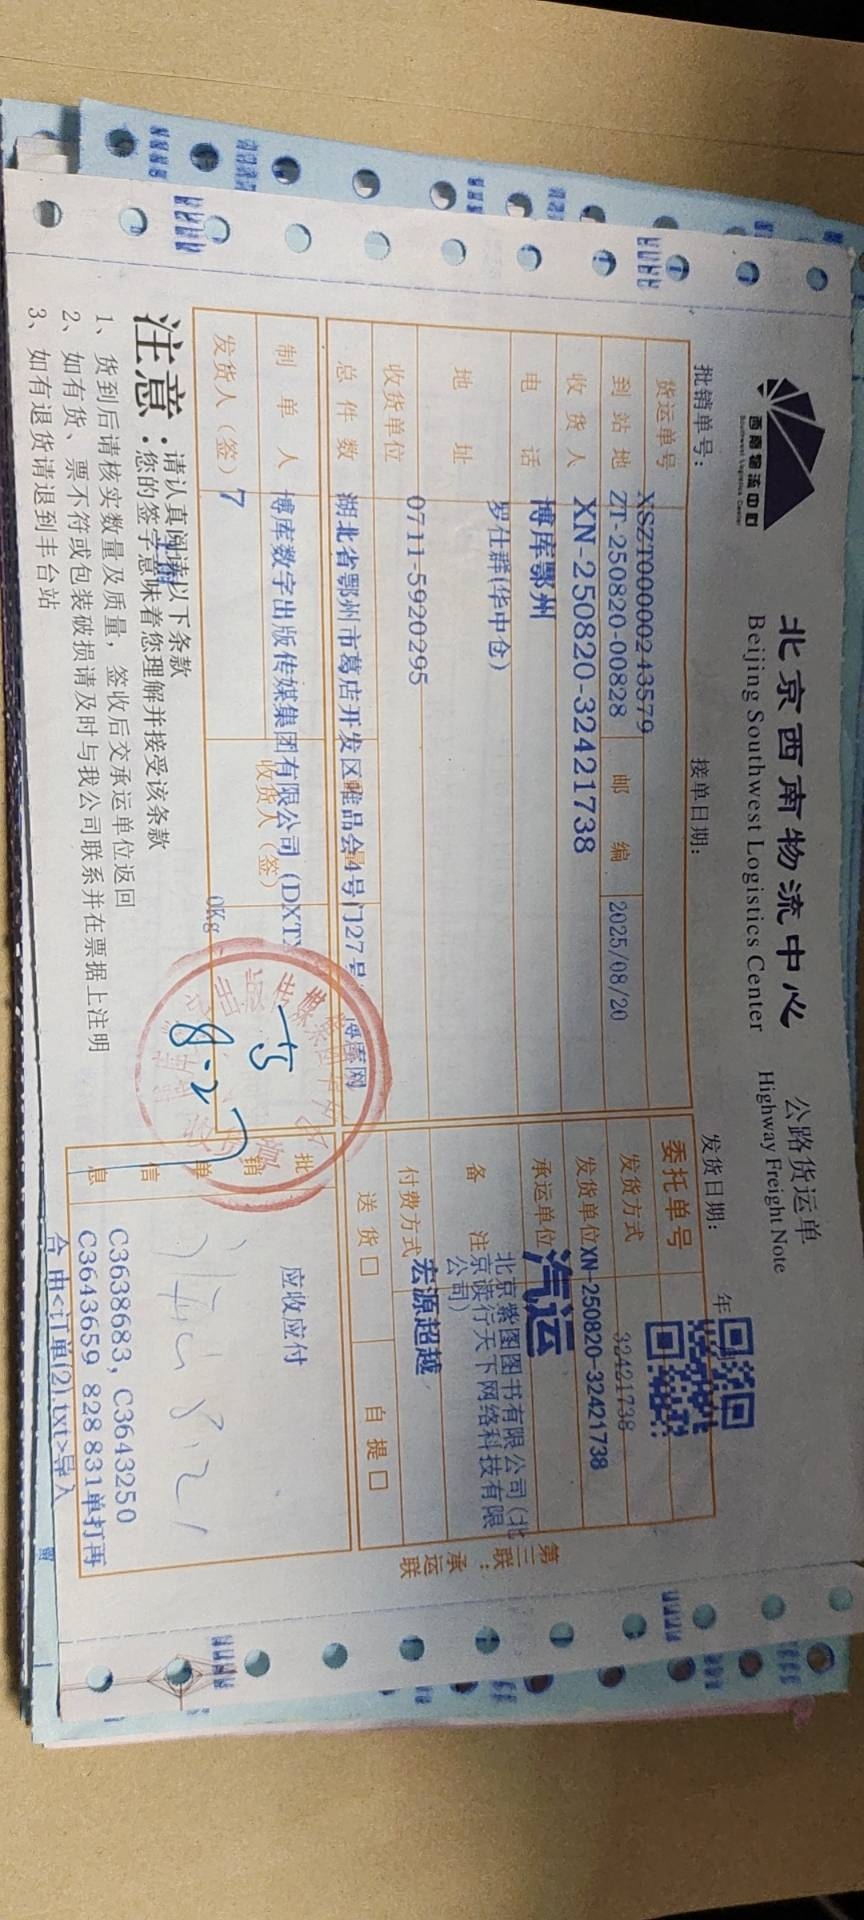 西南物流中心
Southwest Logistics Center
北京西南物流中心
Beijing Southwest Logistics Center
公路货运单
Highway Freight Note
批销单号：
接单日期：
发货日期：
年
XSZT00000243579
货运单号
委托单号
32421738
到站地
ZT-250820-00828
邮 编
2025/08/20
发货方式
XN-250820-32421738
收货人
XN-250820-32421738
发货单位
汽运
电 话
博库鄂州
承运单位
北京紫图图书有限公司(北
京读行天下网络科技有限
公司)
地 址
罗仕群(华中仓)
备 注
宏源超越
收货单位
0711-5920295
付费方式
总件数
湖北省鄂州市葛店开发区唯品会4号门27号
博库网
送货口
自提口
制单人
博库数字出版传媒集团有限公司(DXT
收货人（签）
应收应付
发货人（签）
7
0Kg
8.2
批销单信息
8.21
C3638683, C3643250
C3643659 828 831单打再
合 由<订单(2).txt>导入
第三联：承运联
注意：
请认真阅读以下条款
您的签字意味着您理解并接受该条款
1、货到后请核实数量及质量，签收后交承运单位返回
2、如有货、票不符或包装破损请及时与我公司联系并在票据上注明
3、如有退货请退到丰台站